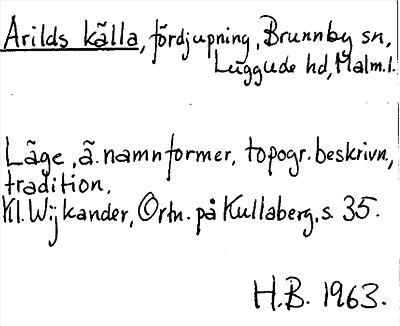 Arilds källa, fördjupning, Brunnby sn,
Luggude hd, Malm.l.
Läge, ä. namnformer, topogr. beskrivn.,
tradition.
Kl. Wijkander, Ortn. på Kullaberg, s. 35.
H.B. 1963.